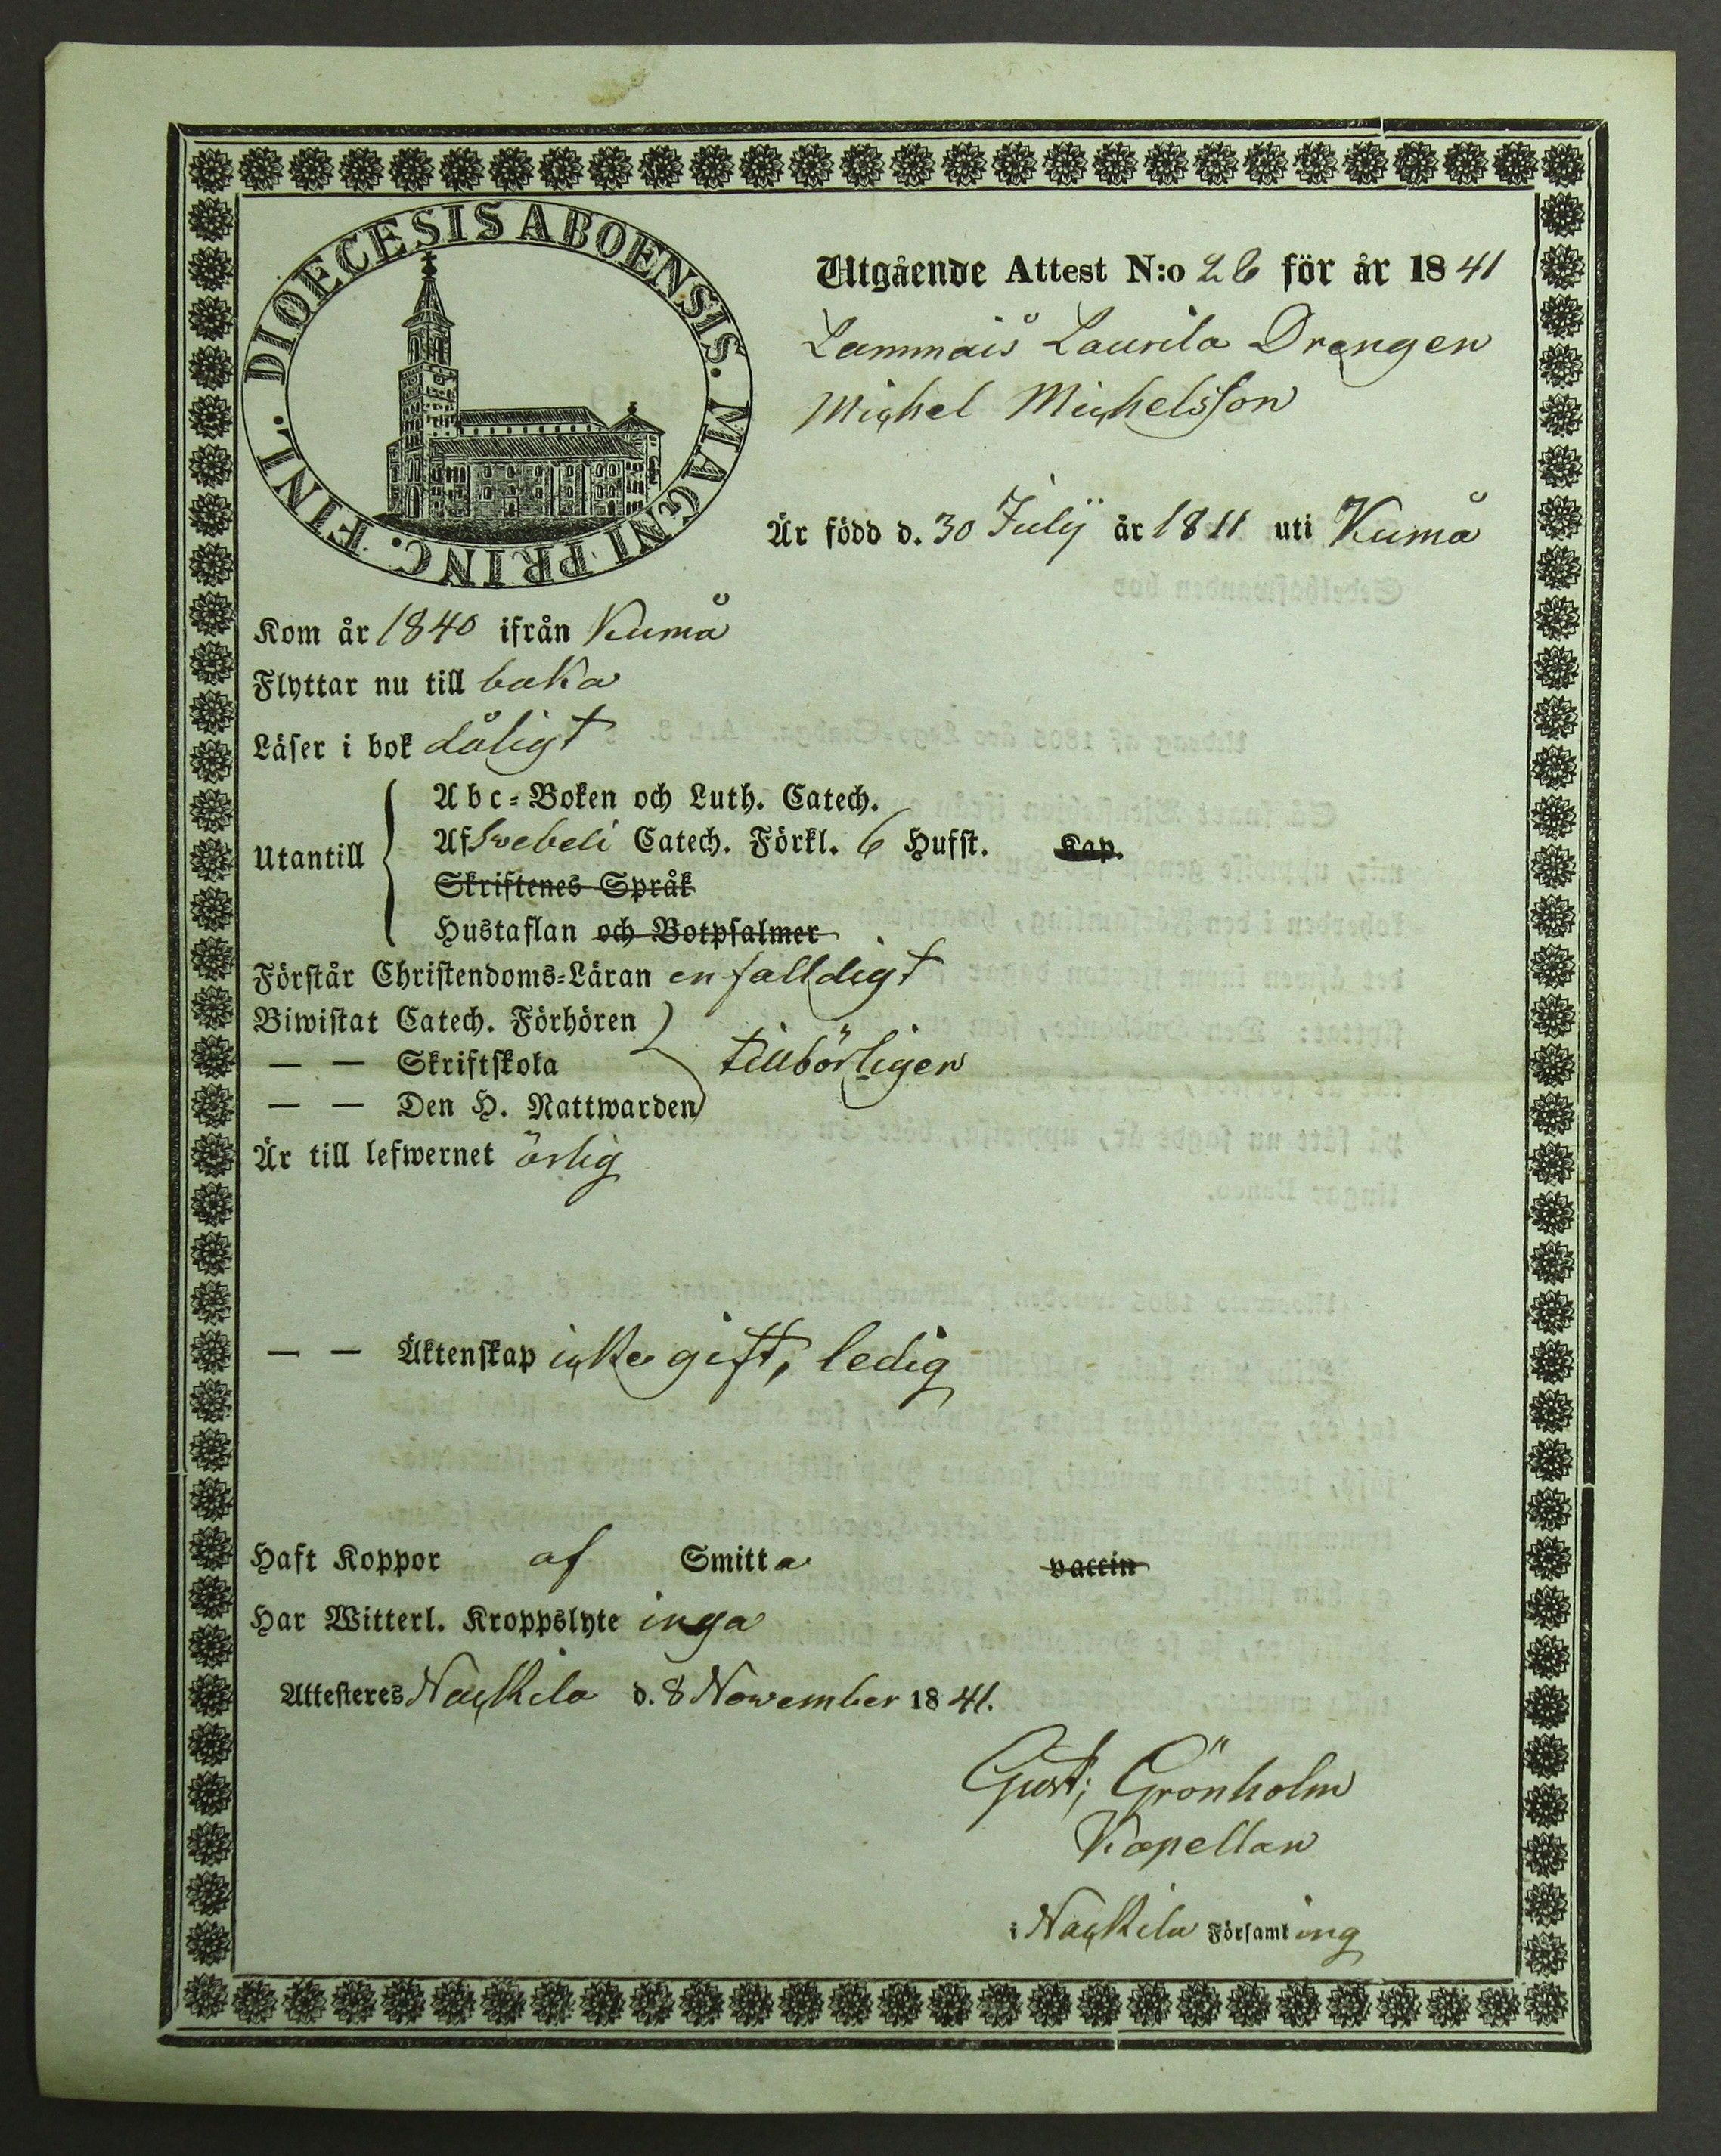 DIOECESIS ABOENSIS. MAGNI PRINC. FINL.
Utgående Attest N:o 26 för år 1841
Lammais Laurila Drengen
Michel Michelsson
Är född d. 30 Julij år 1811 uti Kumå
Kom år 1840 ifrån Kumå
Flyttar nu till baka
Läser i bok dåligt
Utantill
Abc-Boken och Luth. Catech.
Af Svebeli Catech. Förkl. 6 Hufst. Kap.
Skriftenes Språk
Hustaflan och Botpsalmer
Förstår Christendoms-Läran enfalldigt
Biwistat Catech. Förhören
— — Skriftskola tillbörligen
— — Den H. Nattwarden
Är till lefwernet ärlig
— — Äktenskap icke gift, ledig
Haft Koppor af Smitta vaccin
Har Witterl. Kroppslyte inga
Attesteres Nackila d. 8 November 1841.
Gust; Grönholm
Kapellan
i Nackila Församling